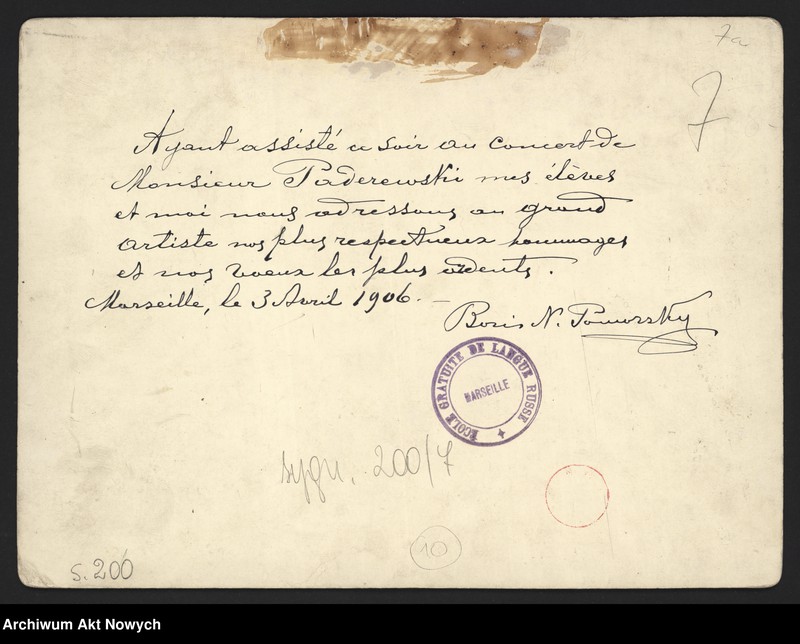 7a
7
Ayant assisté ce soir au concert de
Monsieur Paderewski mes élèves
et moi nous adressons au grand
artiste nos plus respectueux hommages
et nos voeux les plus ardents.
Marseille, le 3 Avril 1906. —
Boris N. Pomorsky
ECOLE GRATUITE DE LANGUE RUSSE
MARSEILLE
sygn. 200/7
10
s. 200
Archiwum Akt Nowych